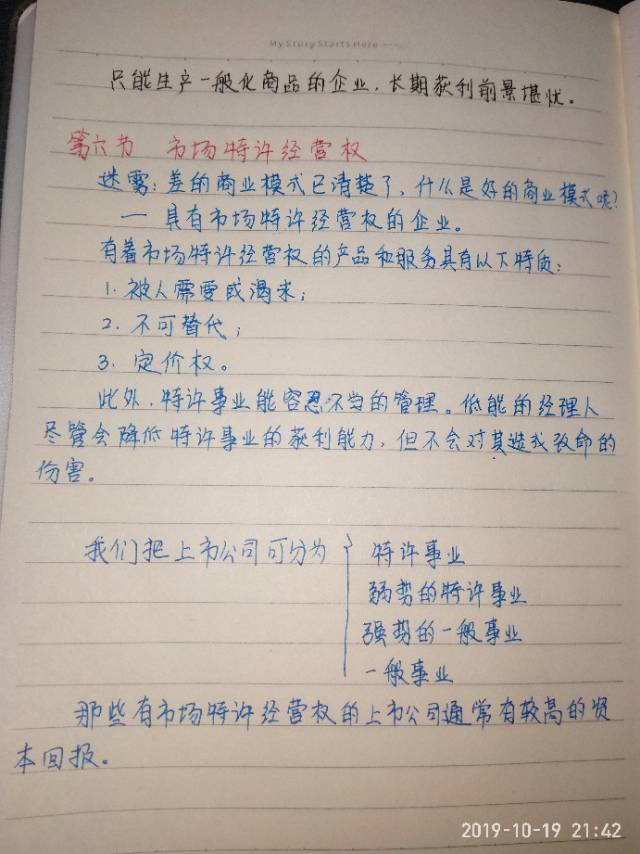 My Story Starts Here
只能生产一般化商品的企业，长期获利前景堪忧。
第六节 市场特许经营权
迷雾：差的商业模式已清楚了，什么是好的商业模式呢？
— 具有市场特许经营权的企业。
有着市场特许经营权的产品和服务具有以下特质：
1. 被人需要或渴求；
2. 不可替代；
3. 定价权。
此外，特许事业能容忍不当的管理。低能的经理人
尽管会降低特许事业的获利能力，但不会对其造成致命的
伤害。
我们把上市公司可分为 特许事业
弱势的特许事业
强势的一般事业
一般事业
那些有市场特许经营权的上市公司通常有较高的资
本回报。
2019-10-19 21:42